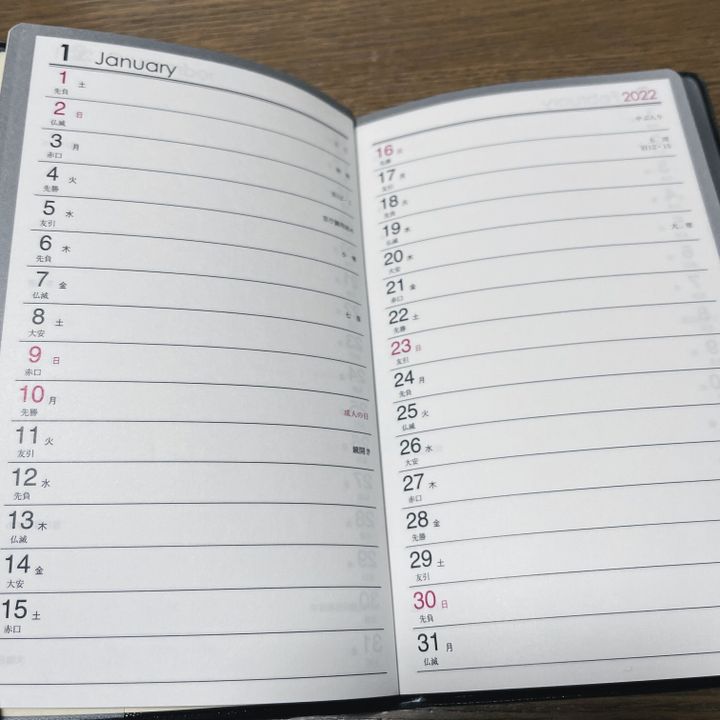 1 January
1 土
先負
2 日
仏滅
3 月
赤口
4 火
先勝
5 水
友引
6 木
先負
小 寒
7 金
仏滅
七 草
8 土
大安
9 日
赤口
10 月
先勝
成人の日
11 火
友引
鏡開き
12 水
先負
13 木
仏滅
14 金
大安
15 土
赤口
2022
やぶ入り
16 日
先勝
17 月
友引
18 火
先負
19 水
仏滅
20 木
大安
大 寒
21 金
赤口
22 土
先勝
23 日
友引
24 月
先負
25 火
仏滅
26 水
大安
27 木
赤口
28 金
先勝
29 土
友引
30 日
先負
31 月
仏滅